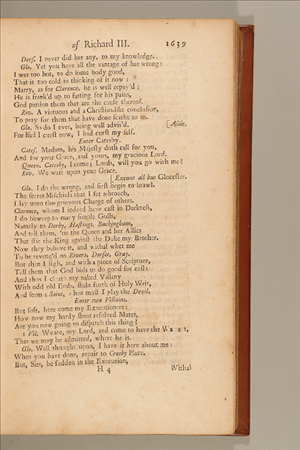 of Richard III. 1639
Dors. I never did her any, to my knowledge.
Glo. Yet you have all the vantage of her wrong:
I was too hot, to do some body good,
That is too cold in thinking of it now:
Marry, as for Clarence, he is well repay'd;
He is frank'd up to fatting for his pains,
God pardon them that are the cause thereof.
Riv. A virtuous and a Christian-like conclusion,
To pray for them that have done scathe to us.
Glo. So do I ever, being well advis'd. [Aside.
For had I curst now, I had curst my self.
Enter Catesby.
Cates. Madam, his Majesty doth call for you,
And for your Grace, and yours, my gracious Lord.
Queen. Catesby, I come; Lords, will you go with me?
Riv. We wait upon your Grace.
[Exeunt all but Glocester.
Glo. I do the wrong, and first begin to brawl.
The secret Mischiefs that I set a-broach,
I lay unto the grievous Charge of others.
Clarence, whom I indeed have cast in Darkness,
I do beweep to many simple Gulls,
Namely to Derby, Hastings, Buckingham,
And tell them, 'tis the Queen and her Allies
That stir the King against the Duke my Brother.
Now they believe it, and withal whet me
To be reveng'd on Rivers, Dorset, Gray.
But then I sigh, and with a piece of Scripture,
Tell them that God bids us do good for evil:
And thus I cloath my naked Villany
With odd old Ends, stoln forth of Holy Writ,
And seem a Saint, when most I play the Devil.
Enter two Villains.
But soft, here come my Executioners:
How now my hardy stout resolved Mates,
Are you now going to dispatch this thing?
1 Vil. We are, my Lord, and come to have the Warrant,
That we may be admitted, where he is.
Glo. Well thought upon, I have it here about me:
When you have done, repair to Crosby Place.
But, Sirs, be sudden in the Execution,
H 4 Withal